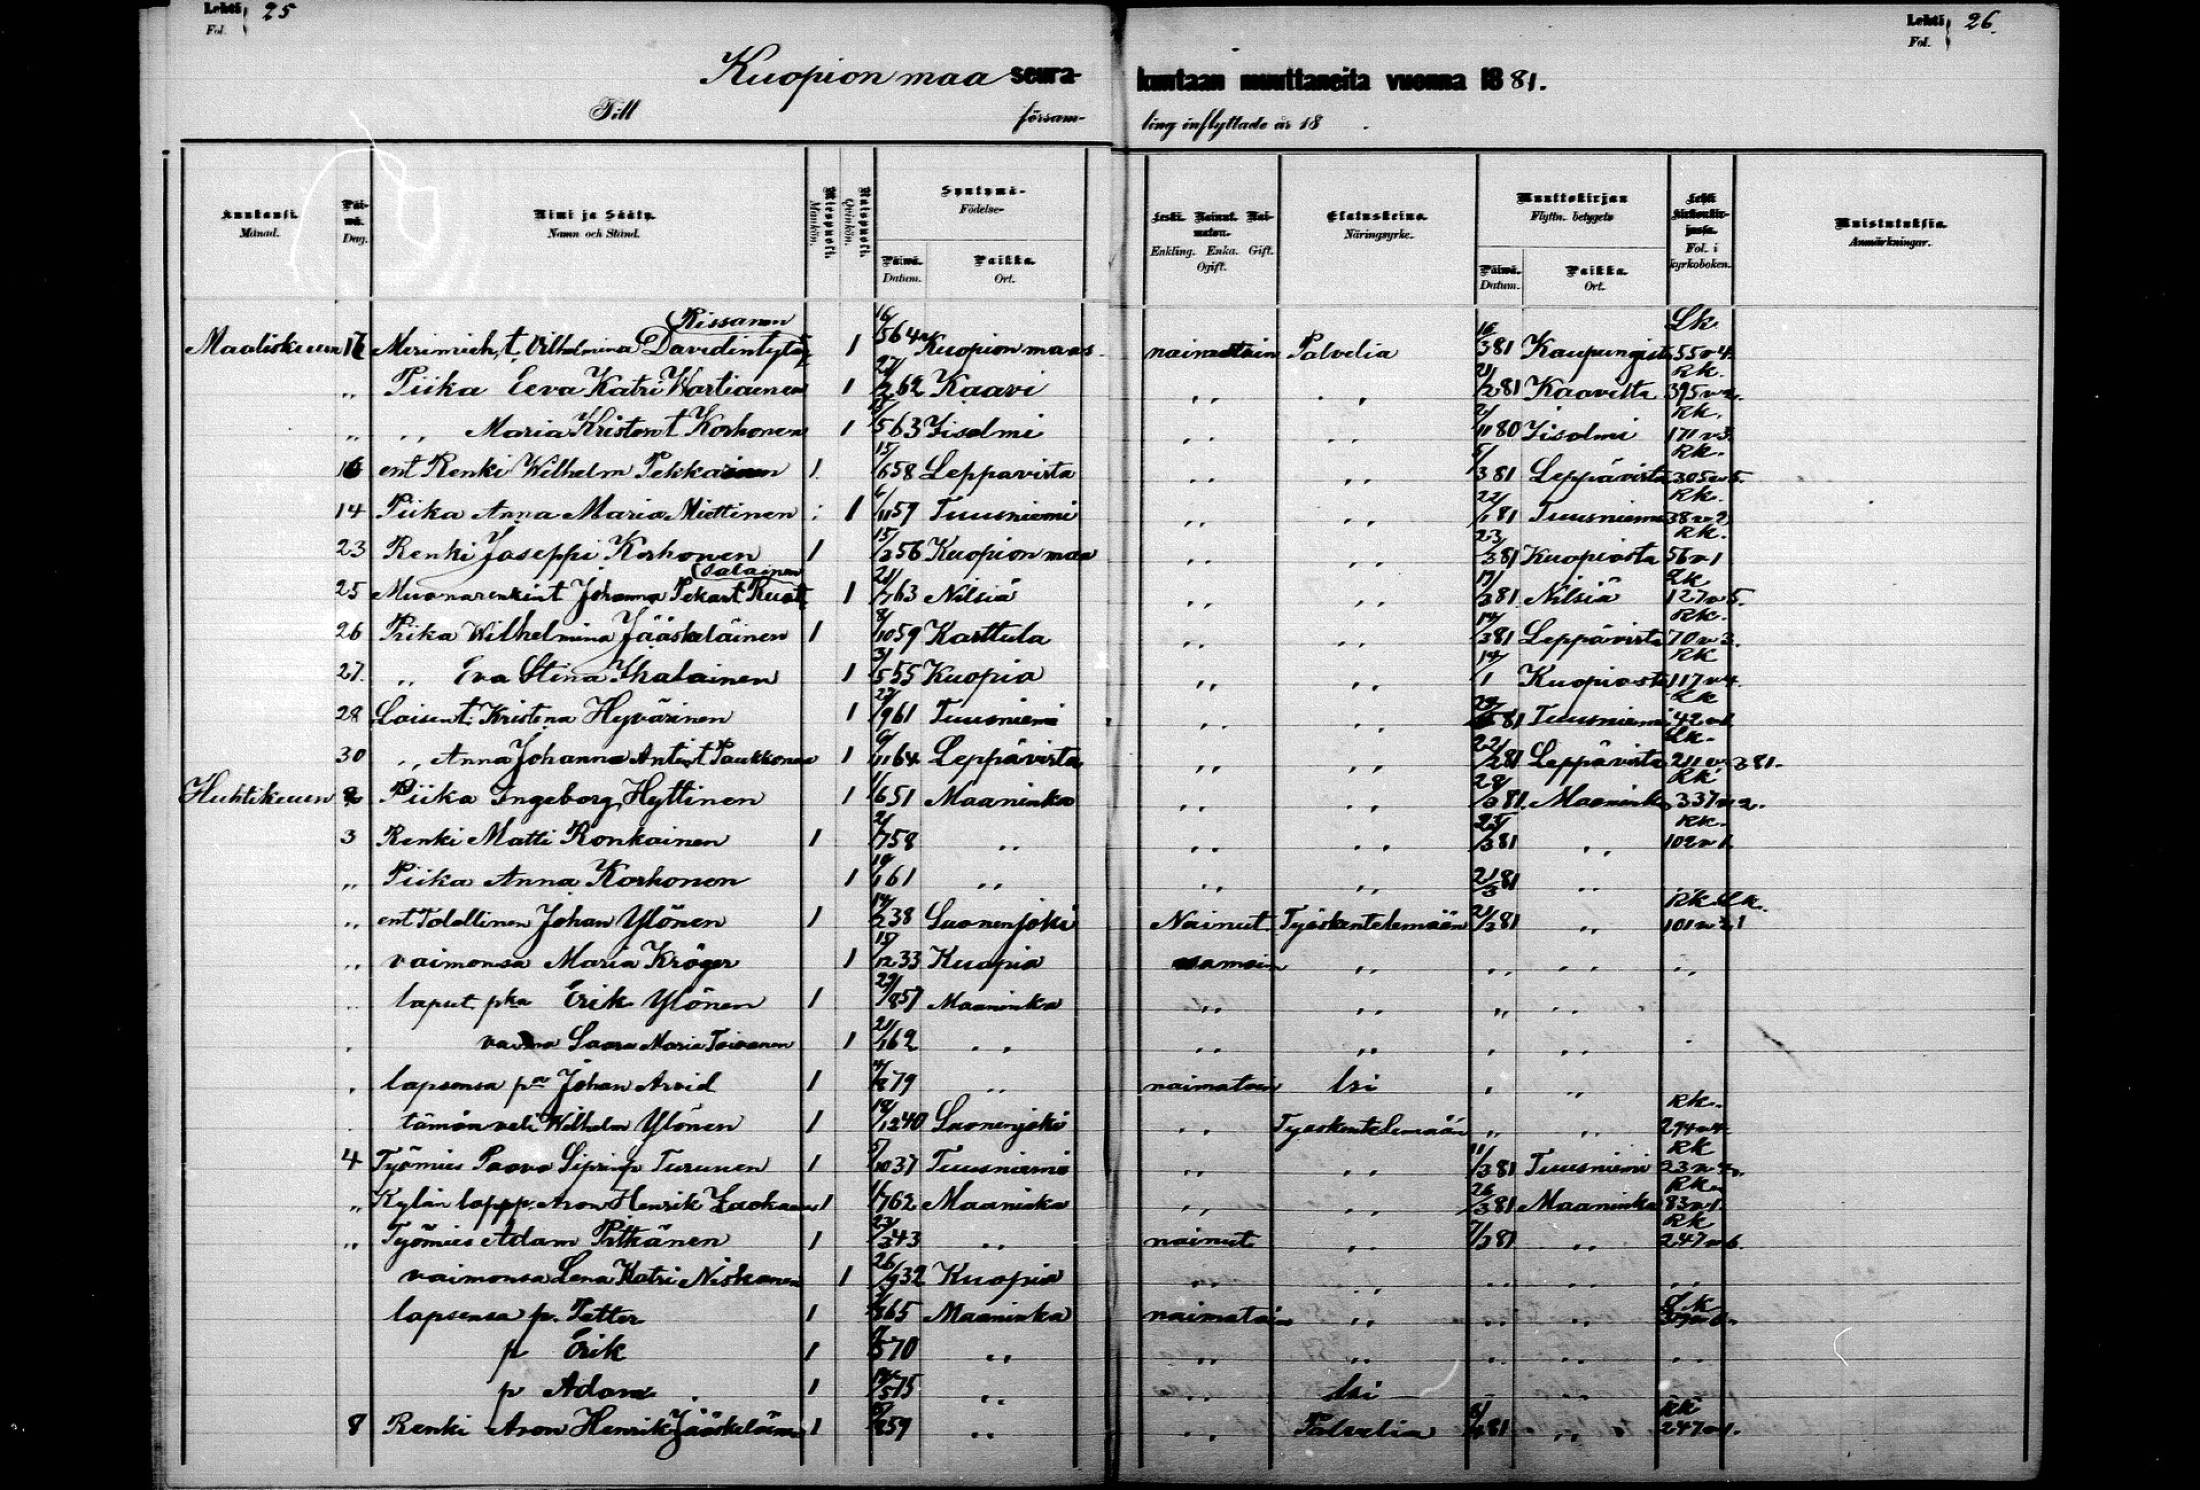 Lehti 25
Fol.
Lehti 26.
Fol.
Kuopion maa seura- kuntaan muuttaneita vuonna 1881.
Till försam- ling inflyttade år 18 .
Kuukausi. Månad. Päivä. Dag. Nimi ja Sääty. Namn och Stånd. Miespuoli. Mankön. Naispuoli. Qvinkön. Syntymä- Födelse- Päivä. Datum. Paikka. Ort. Leski. Nainut. Naimaton. Enkling. Enka. Gift. Ogift. Elatuskeino. Näringsyrke. Muuttokirjan Flyttn. betygets Päivä. Datum. Paikka. Ort. Lehti kirkonkirjassa. Fol. i kyrkoboken. Muistutuksia. Anmärkningar.
Rissanen
Maaliskuun 17 Vilhelmina Davidintytär 1 16/5 64 Kuopion maas naimatoin Palvelia 16/3 81 Kaupungista Lk. 55 v 4.
„ Piika Eeva Katri Wartiainen 1 27/2 62 Kaavi „ „ 21/2 81 Kaavilta Rk. 395 v 2.
„ „ Maria Kristont Korhonen 1 /5 63 Iisalmi „ „ 2/11 80 Iisalmi Rk. 171 v 3
16 ent Renki Wilhelm Pekkarinen 1 15/6 58 Leppavirta „ „ 5/3 81 Leppävirta Rk. 305 v 5.
14 Piika Anna Maria Miettinen 1 6/11 57 Tuusniemi „ „ 22/1 81 Tuusniemi Rk. 38 v 2
23 Renki Joseppi Korhonen 1 15/3 56 Kuopion maa „ „ 23/3 81 Kuopiosta Rk. 56 v 1
25 Muonarenkint Johanna 1 21/7 63 Nilsiä „ „ 17/3 81 Nilsiä Lk 127 v 5.
26 Piika Wilhelmina Jääskeläinen 1 8/10 59 Karttula „ „ 14/3 81 Leppävirta Rk. 70 v 3.
27. „ Eva Stina Ihalainen 1 3/5 55 Kuopio „ „ 14/1 Kuopiosta RK 117 v 4.
28 Loisent. Kristena Hyvärinen 1 27/9 61 Tuusniemi „ „ 81 Tuusniemi Rk 42 v 1
30 „ Anna Johanna Antint Paukkonen 1 9/11 64 Leppävirta „ „ 22/2 81 Leppävirta Lk. 211 v. 381.
Huhtikuun 2 Piika Ingeborg Hyttinen 1 1/6 51 Maaninka „ „ 28/3 81. Maaninka Rk 337 v 2.
3 Renki Matti Ronkainen 1 2/7 58 „ „ „ 23/3 81 „ Rk. 102 v 1.
„ Piika Anna Korhonen 1 19/1 61 „ „ „ 21/3 81 „
„ ent Tolallinen Johan Ylönen 1 14/2 38 Suonenjoki Nainut. Työskentelemään 21/3 81 „ Rk. Lk. 101 v 2,1
„ vaimonsa Maria Kröger 1 15/12 33 Kuopio samoin „ „ „ „
„ laput pka Erik Ylönen 1 29/8 57 Maaninka „ „ „ „
„ vaimo Saara Maria Toivanen 1 21/1 62 „ „ „ „ „
„ lapsensa pa Johan Arvid 1 79 „ naimatoin lsi „ „
tämän veli Wilhelm Ylönen 1 18/12 40 Suonenjoki „ Työskentelemään „ „ Rk. 294 v 4.
4 Työmies Paavo Turunen 1 5/10 37 Tuusniemi „ „ 11/3 81 Tuusniemi RK 23 v
„ Kylän Aron Henrik 1 1/7 62 Maaninka „ „ 26/3 81 Maaninka Rk. 83 v 1.
„ Työmies Adam Pitkänen 1 23/3 43 „ nainut „ 7/3 81 „ Rk 247 v 6.
vaimonsa Lena Katri Niskanen 1 26/9 32 Kuopio „ „ „ „ „
lapsensa p. Petter 1 65 Maaninka naimatoin „ „ „
p Erik 1 /5 70 „ „ „ „ „ „
p Adam 1 /5 75 „ „ lsi
8 Renki Aron Henrik Jääskeläinen 1 59 „ „ Palvelia 81 „ RK 247 v 1.